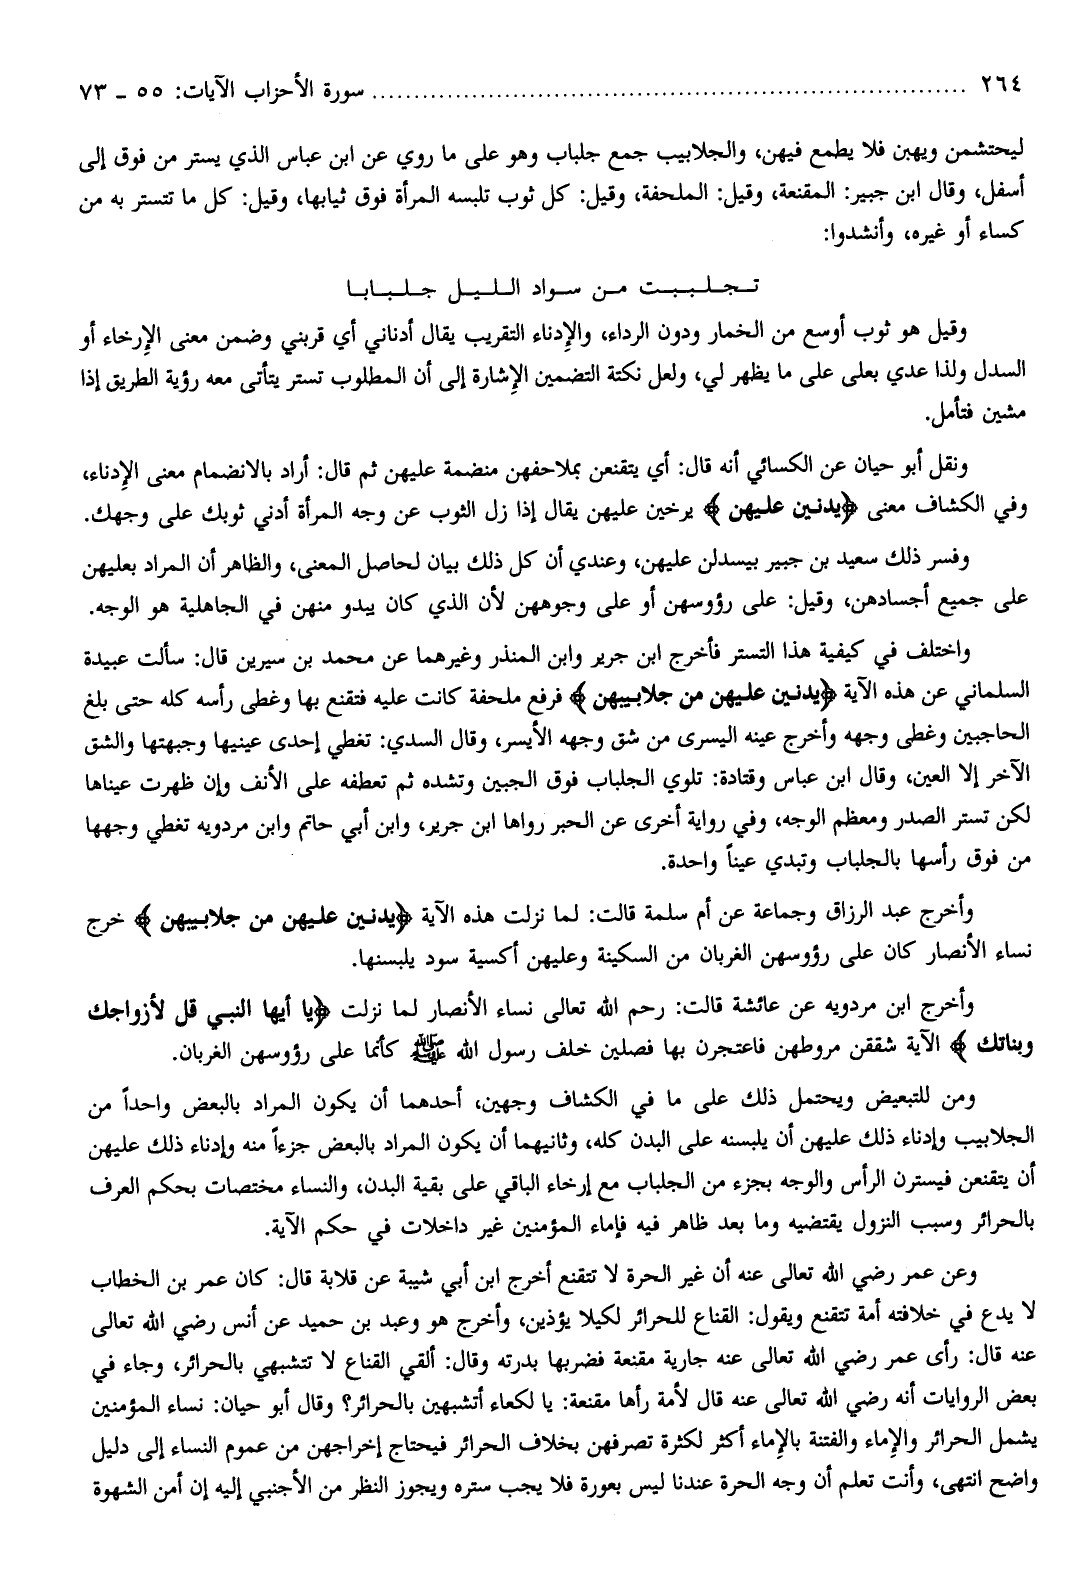 ٢٦٤ ........................................................ سورة الأحزاب الآيات: ٥٥ ـ ٧٣
ليحتشمن ويهبن فلا يطمع فيهن، والجلابيب جمع جلباب وهو على ما روي عن ابن عباس الذي يستر من فوق إلى
أسفل، وقال ابن جبير: المقنعة، وقيل: الملحفة، وقيل: كل ثوب تلبسه المرأة فوق ثيابها، وقيل: كل ما تتستر به من
كساء أو غيره، وأنشدوا:
تـجـلـبـبـت مـن سـواد الـلـيـل جـلـبـابـا
وقيل هو ثوب أوسع من الخمار ودون الرداء، والإدناء التقريب يقال أدناني أي قربني وضمن معنى الإرخاء أو
السدل ولذا عدي بعلى على ما يظهر لي، ولعل نكتة التضمين الإشارة إلى أن المطلوب تستر يتأتى معه رؤية الطريق إذا
مشين فتأمل.
ونقل أبو حيان عن الكسائي أنه قال: أي يتقنعن بملاحفهن منضمة عليهن ثم قال: أراد بالانضمام معنى الإدناء،
وفي الكشاف معنى ﴿يدنين عليهن﴾ يرخين عليهن يقال إذا زل الثوب عن وجه المرأة أدني ثوبك على وجهك.
وفسر ذلك سعيد بن جبير بيسدلن عليهن، وعندي أن كل ذلك بيان لحاصل المعنى، والظاهر أن المراد بعليهن
على جميع أجسادهن، وقيل: على رؤوسهن أو على وجوههن لأن الذي كان يبدو منهن في الجاهلية هو الوجه.
واختلف في كيفية هذا التستر فأخرج ابن جرير وابن المنذر وغيرهما عن محمد بن سيرين قال: سألت عبيدة
السلماني عن هذه الآية ﴿يدنين عليهن من جلابيبهن﴾ فرفع ملحفة كانت عليه فتقنع بها وغطى رأسه كله حتى بلغ
الحاجبين وغطى وجهه وأخرج عينه اليسرى من شق وجهه الأيسر، وقال السدي: تغطي إحدى عينيها وجبهتها والشق
الآخر إلا العين، وقال ابن عباس وقتادة: تلوي الجلباب فوق الجبين وتشده ثم تعطفه على الأنف وإن ظهرت عيناها
لكن تستر الصدر ومعظم الوجه، وفي رواية أخرى عن الحبر رواها ابن جرير، وابن أبي حاتم وابن مردويه تغطي وجهها
من فوق رأسها بالجلباب وتبدي عيناً واحدة.
وأخرج عبد الرزاق وجماعة عن أم سلمة قالت: لما نزلت هذه الآية ﴿يدنين عليهن من جلابيبهن﴾ خرج
نساء الأنصار كان على رؤوسهن الغربان من السكينة وعليهن أكسية سود يلبسنها.
وأخرج ابن مردويه عن عائشة قالت: رحم الله تعالى نساء الأنصار لما نزلت ﴿يا أيها النبي قل لأزواجك
وبناتك﴾ الآية شققن مروطهن فاعتجرن بها فصلين خلف رسول الله ﷺ كأنما على رؤوسهن الغربان.
ومن للتبعيض ويحتمل ذلك على ما في الكشاف وجهين، أحدهما أن يكون المراد بالبعض واحداً من
الجلابيب وإدناء ذلك عليهن أن يلبسنه على البدن كله، وثانيهما أن يكون المراد بالبعض جزءاً منه وإدناء ذلك عليهن
أن يتقنعن فيسترن الرأس والوجه بجزء من الجلباب مع إرخاء الباقي على بقية البدن، والنساء مختصات بحكم العرف
بالحرائر وسبب النزول يقتضيه وما بعد ظاهر فيه فإماء المؤمنين غير داخلات في حكم الآية.
وعن عمر رضي الله تعالى عنه أن غير الحرة لا تتقنع أخرج ابن أبي شيبة عن قلابة قال: كان عمر بن الخطاب
لا يدع في خلافته أمة تتقنع ويقول: القناع للحرائر لكيلا يؤذين، وأخرج هو وعبد بن حميد عن أنس رضي الله تعالى
عنه قال: رأى عمر رضي الله تعالى عنه جارية مقنعة فضربها بدرته وقال: ألقي القناع لا تتشبهي بالحرائر، وجاء في
بعض الروايات أنه رضي الله تعالى عنه قال لأمة رأها مقنعة: يا لكعاء أتشبهين بالحرائر؟ وقال أبو حيان: نساء المؤمنين
يشمل الحرائر والإماء والفتنة بالإماء أكثر لكثرة تصرفهن بخلاف الحرائر فيحتاج إخراجهن من عموم النساء إلى دليل
واضح انتهى، وأنت تعلم أن وجه الحرة عندنا ليس بعورة فلا يجب ستره ويجوز النظر من الأجنبي إليه إن أمن الشهوة